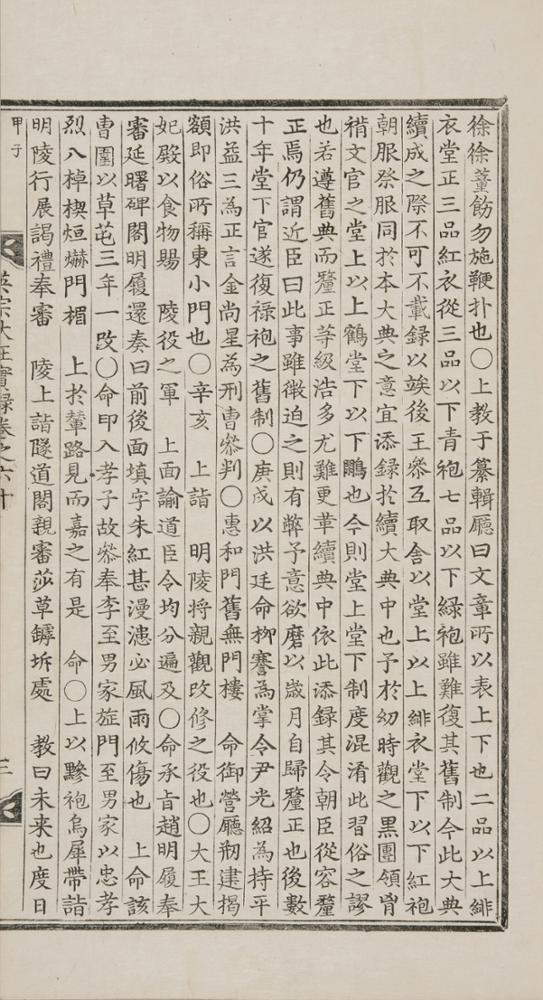 徐徐董飭勿施鞭扑也○上敎于纂輯廳曰文章所以表上下也二品以上緋
衣堂正三品紅衣從三品以下青袍七品以下緑袍雖難復其舊制今此大典
續成之際不可不載録以竢後王叅互取舍以堂上以上緋衣堂下以下紅袍
朝服祭服同於本大典之意宜添録於續大典中也予於幼時觀之黑團領胷
褙文官之堂上以上鶴堂下以下鷴也今則堂上堂下制度混淆此習俗之謬
也若遵舊典而釐正等級浩多尤難更革續典中依此添録其令朝臣從容釐
正焉仍謂近臣曰此事雖微迫之則有弊予意欲磨以歲月自歸釐正也後數
十年堂下官遂復禄袍之舊制○庚戌以洪廷命柳謇為掌令尹光紹為持平
洪益三為正言金尚星為刑曹叅判○惠和門舊無門樓　命御營廳刱建揭
額即俗所稱東小門也○辛亥　上詣　明陵将親觀改修之役也○大王大
妃殿以食物賜　陵役之軍　上面諭道臣令均分遍及○命承旨趙明履奉
審延曙碑閣明履還奏曰前後面填字朱紅甚漫漶必風雨攸傷也　上命該
曹圍以草芚三年一改○命印入孝子故叅奉李至男家旌門至男家以忠孝
烈八棹楔烜爀門楣　上於輦路見而嘉之有是　命○上以黲袍烏犀帶詣
明陵行展謁禮奉審　陵上詣隧道閣親審莎草罅坼處　敎曰未来也度日
甲子
英宗大王實録卷之六十
三